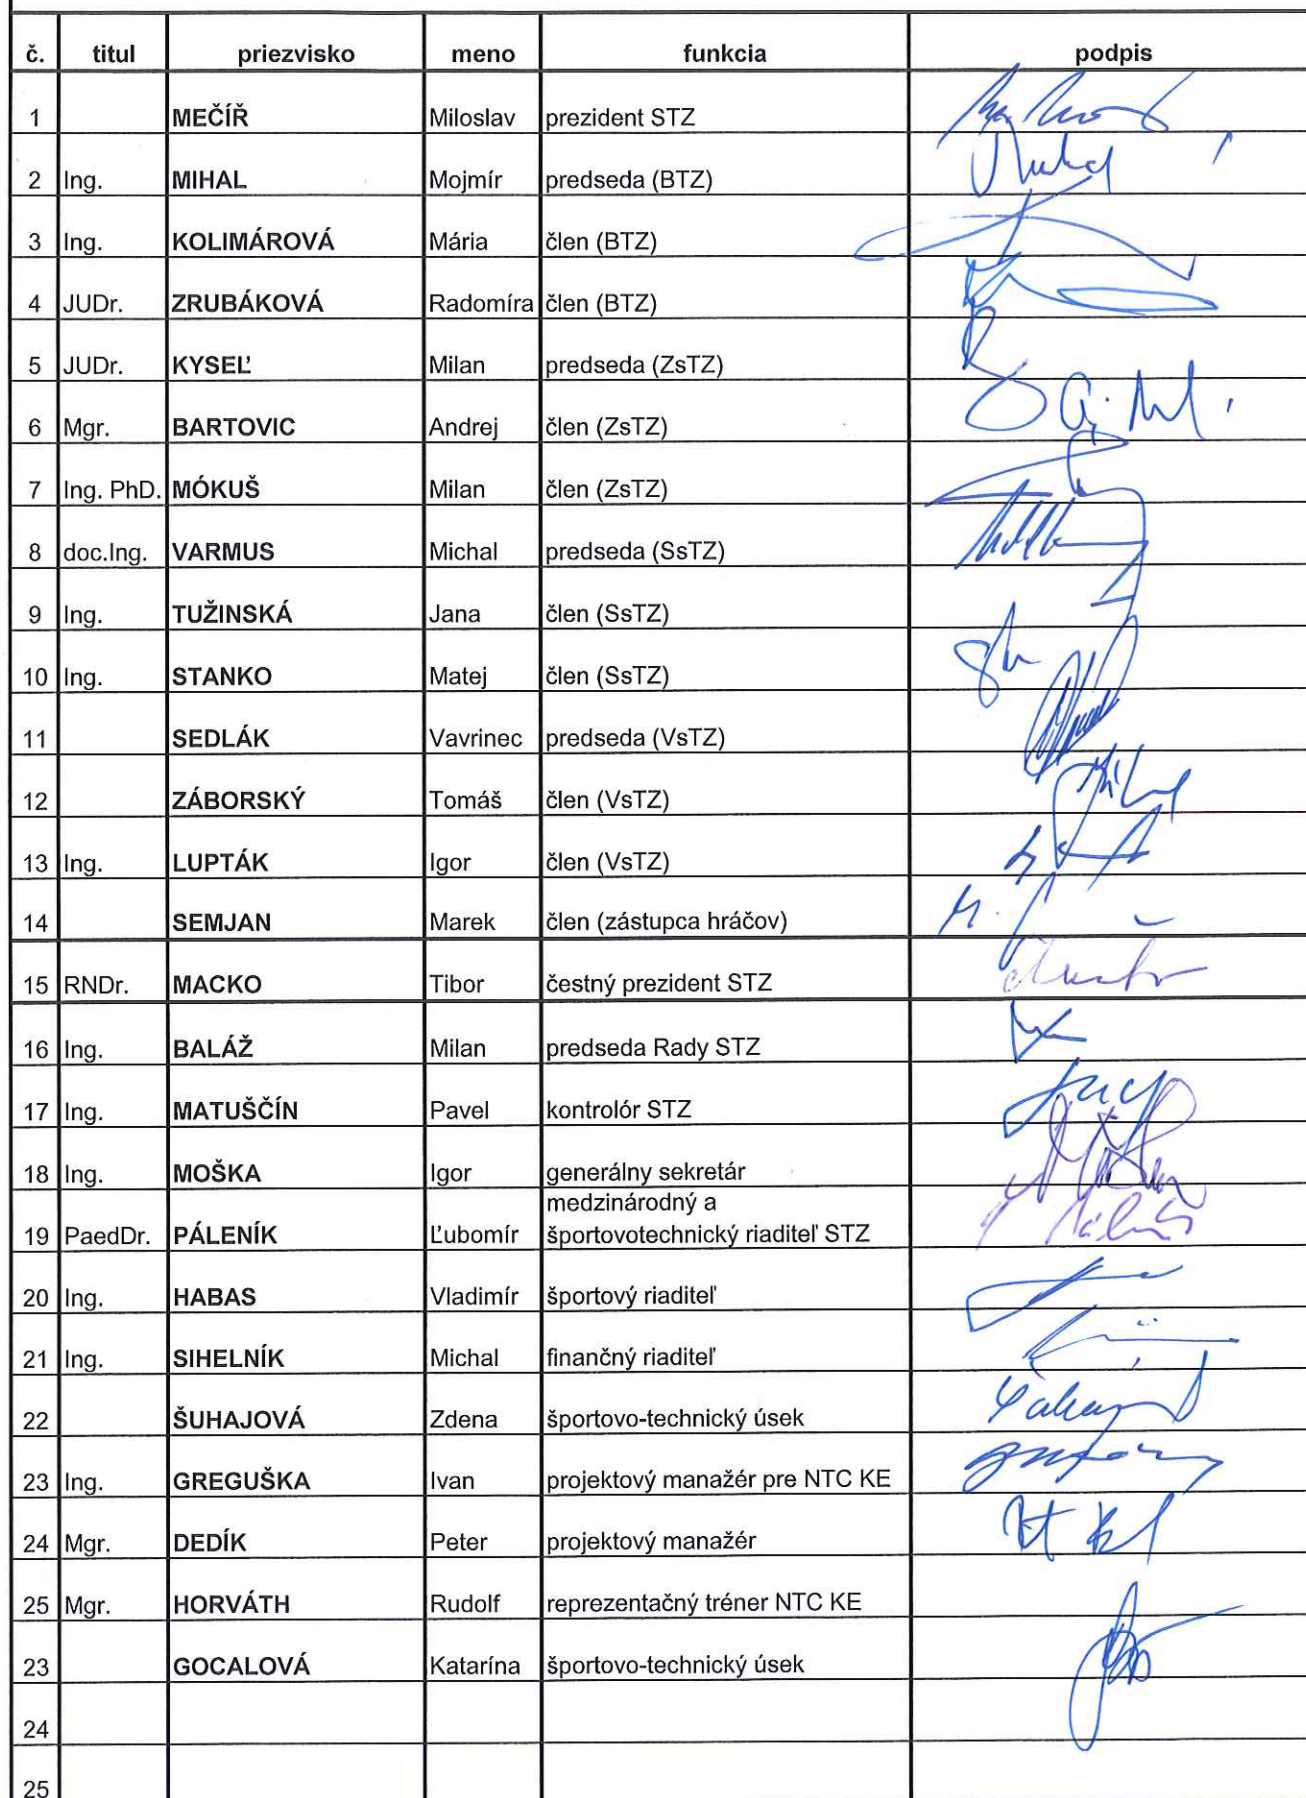 č. titul priezvisko meno funkcia podpis
1 MEČÍŘ Miloslav prezident STZ
2 Ing. MIHAL Mojmír predseda (BTZ)
3 Ing. KOLIMÁROVÁ Mária člen (BTZ)
4 JUDr. ZRUBÁKOVÁ Radomíra člen (BTZ)
5 JUDr. KYSEĽ Milan predseda (ZsTZ)
6 Mgr. BARTOVIC Andrej člen (ZsTZ)
7 Ing. PhD. MÓKUŠ Milan člen (ZsTZ)
8 doc.Ing. VARMUS Michal predseda (SsTZ)
9 Ing. TUŽINSKÁ Jana člen (SsTZ)
10 Ing. STANKO Matej člen (SsTZ)
11 SEDLÁK Vavrinec predseda (VsTZ)
12 ZÁBORSKÝ Tomáš člen (VsTZ)
13 Ing. LUPTÁK Igor člen (VsTZ)
14 SEMJAN Marek člen (zástupca hráčov)
15 RNDr. MACKO Tibor čestný prezident STZ
16 Ing. BALÁŽ Milan predseda Rady STZ
17 Ing. MATUŠČÍN Pavel kontrolór STZ
18 Ing. MOŠKA Igor generálny sekretár
medzinárodný a
19 PaedDr. PÁLENÍK Ľubomír športovotechnický riaditeľ STZ
20 Ing. HABAS Vladimír športový riaditeľ
21 Ing. SIHELNÍK Michal finančný riaditeľ
22 ŠUHAJOVÁ Zdena športovo-technický úsek
23 Ing. GREGUŠKA Ivan projektový manažér pre NTC KE
24 Mgr. DEDÍK Peter projektový manažér
25 Mgr. HORVÁTH Rudolf reprezentačný tréner NTC KE
23 GOCALOVÁ Katarína športovo-technický úsek
24
25